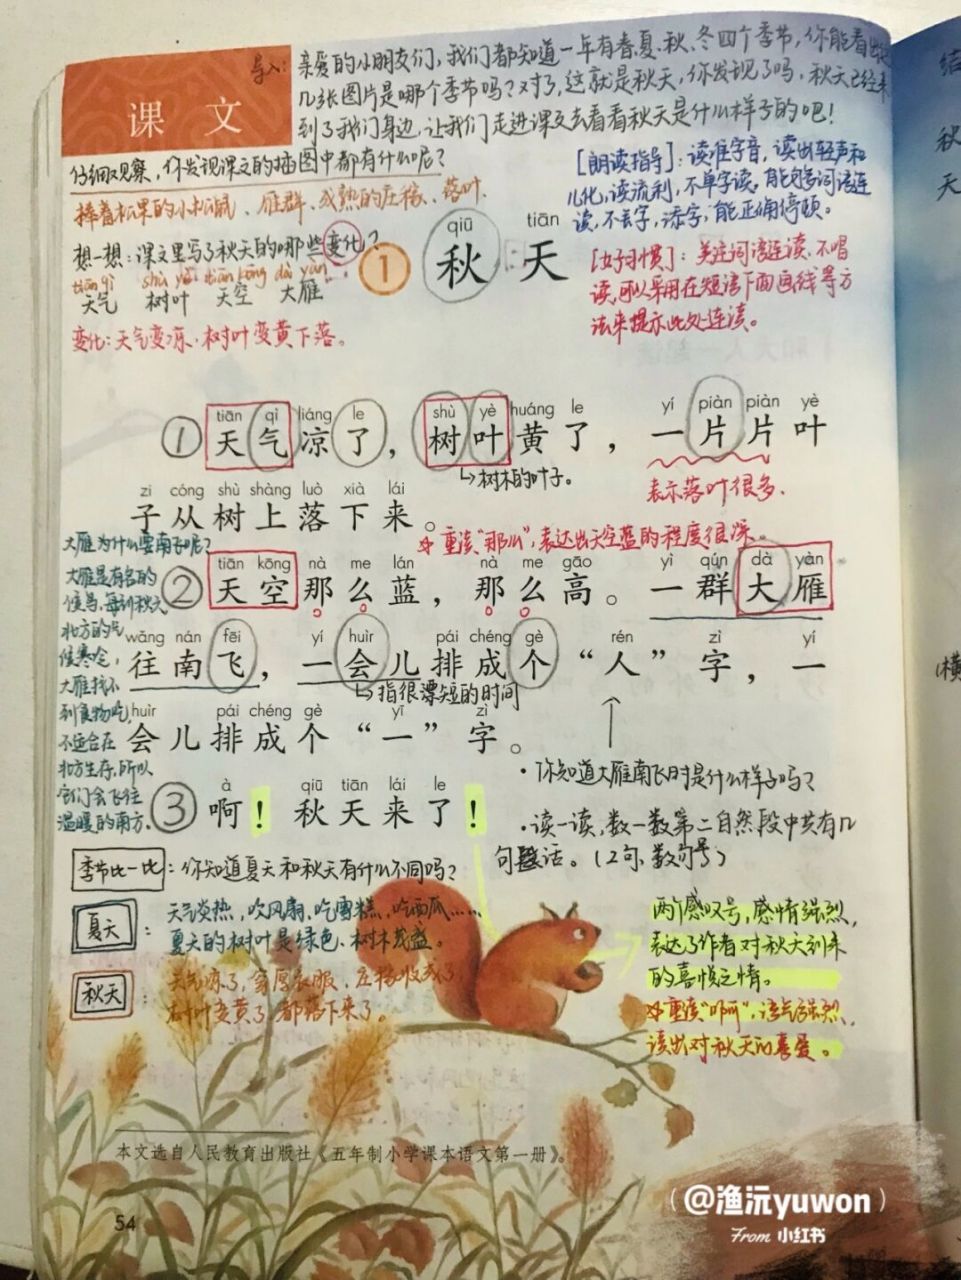 导入：亲爱的小朋友们，我们都知道一年有春、夏、秋、冬四个季节，你能看出
几张图片是哪个季节吗？对了，这就是秋天，你发现了吗，秋天已经来
到了我们身边，让我们走进课文去看看秋天是什么样子的吧！
课 文
仔细观察，你发现课文的插图中都有什么呢？
捧着松果的小松鼠、雁群、成熟的庄稼、落叶.
想一想：课文里写了秋天的哪些变化？
tiān qì shù yè tiān kōng dà yàn
天气 树叶 天空 大雁
变化：天气变凉、树叶变黄下落。
①
qiū tiān
秋 天
[朗读指导]：读准字音，读出轻声和
儿化，读流利，不单字读，能够多词语连
读，不丢字，添字，能正确停顿。
[好习惯]：关注词语连读，不唱
读，可以采用在短语下面画线等方
法来提示此处连读。
tiān qì liáng le shù yè huáng le yí piàn piàn yè
① 天气凉了，树叶黄了，一片片叶
→树木的叶子。
表示落叶很多.
zi cóng shù shàng luò xià lái
子从树上落下来。
重读“那么”，表达出天空蓝的程度很深。
tiān kōng nà me lán nà me gāo yì qún dà yàn
② 天空那么蓝，那么高。一群大雁
wǎng nán fēi yí huìr pái chéng gè rén zì yí
往南飞，一会儿排成个“人”字，一
→指很短的时间
huìr pái chéng gè yī zì
会儿排成个“一”字。
大雁为什么要南飞呢？
大雁是有名的
候鸟，每到秋天，
北方的气
候寒冷，
大雁找不
到食物吃，
不适合在
北方生存，所以
它们会飞往
温暖的南方.
·你知道大雁南飞时是什么样子吗？
à qiū tiān lái le
③ 啊！秋天来了！
·读一读，数一数第二自然段中共有几
句话。（2句，数句号）
季节比一比：你知道夏天和秋天有什么不同吗？
夏天：天气炎热，吹风扇、吃雪糕，吃西瓜……
夏天的树叶是绿色、树木茂盛。
秋天：天气凉了，穿厚衣服，庄稼收成了
树叶变黄了，都落下来了。
两个感叹号，感情强烈，
表达了作者对秋天到来
的喜悦之情。
重读“啊”，语气强烈，
读出对秋天的喜爱。
本文选自人民教育出版社《五年制小学课本语文第一册》。
54
结
秋
天
（横
（@渔沅yuwon）
From 小红书